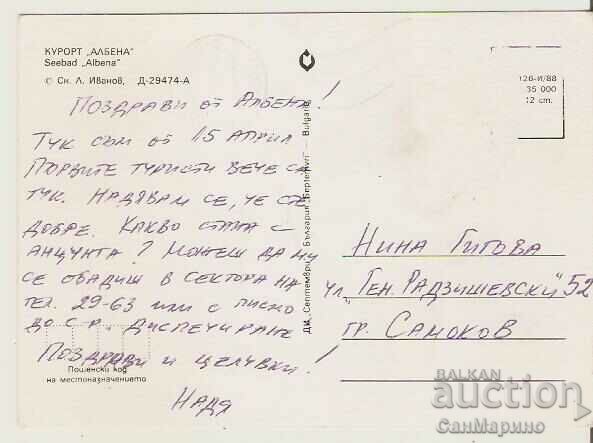 КУРОРТ „АЛБЕНА"
Seebad „Albena"
© Сн. Л. Иванов, Д-29474-А
126-И/88
35 000
12 ст.
ПОЗДРАВИ ОТ АЛБЕНА!
ТУК СЪМ ОТ 15 АПРИЛ
ПЪРВИТЕ ТУРИСТИ ВЕЧЕ СА
ТУК. НАДЯВАМ СЕ, ЧЕ СТЕ
ДОБРЕ. КАКВО СТАНА С
АНЦУНГА? МОЖЕШ ДА МИ
СЕ ОБАДИШ В СЕКТОРА НА
ТЕЛ. 29-63 ИЛИ С ПИСМО
ДО С.Р. ДИСПЕЧИРАНЕ
ПОЗДРАВИ И ЦЕЛУВКИ!
НАДЯ
Пощенски код
на местоназначението
ДИ „Септември", България „Septemvri" — Bulgaria
НИНА ГИГОВА
УЛ. "ГЕН. РАДЗИШЕВСКИ" 52
ГР. САМОКОВ
BALKAN
auction
СанМарино